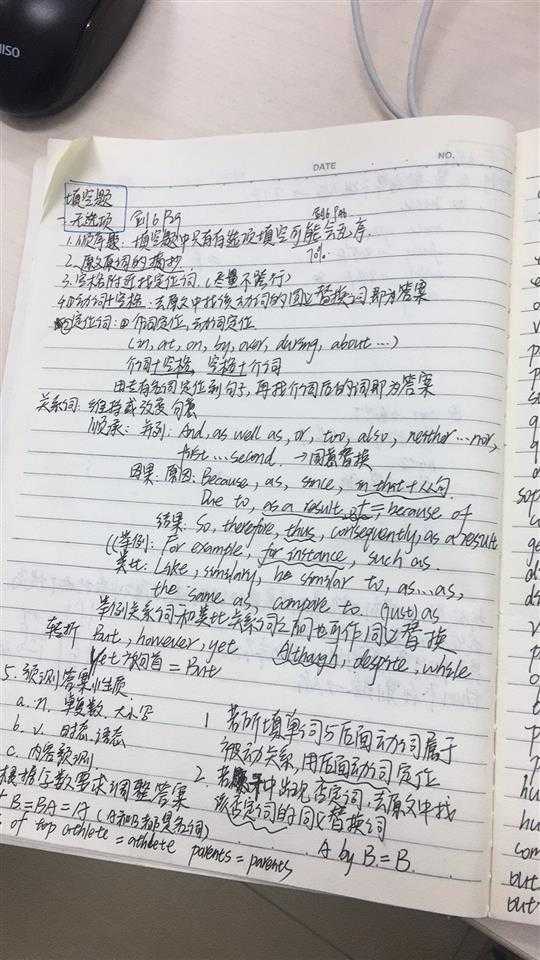 MINISO
DATE NO.
填空题
一.无选项 剑6 P29 剑6 P86
1.顺序题：填空题中只有有选项填空可能会乱序.
70%.
2.原文原词的摘抄.
3.空格附近找定位词 (尽量不跨行)
4.动词+空格：去原文中找该动词的同义替换词即为答案
定位词：① 介词定位,动词定位
(in, at, on, by, over, during, about …)
介词+空格, 空格+介词
由去有名词定位到句子,再找介词后的词即为答案
关系词：维持或改变句意
顺承：并列：And, as well as, or, too, also, neither…nor,
first … second. → 同意替换
因果：原因：Because, as, since, in that +从句.
Due to, as a result of = because of
结果：So, therefore, thus, consequently, as a result
举例：For example, for instance, such as.
类比：Like, similarly, be similar to, as…as,
the same as, compare to. (just) as
举例关系词和类比关系词之间也可作同义替换
转折 But, however, yet Although, despite, while
Yet 放句首 = But
5. 预测答案性质.
a. n. 单复数. 大小写
b. v. 时态.语态
c. 内容预测
根据字数要求调整答案
B = BA = A (A和B都是名词)
of top athlete = athlete parents = parents
1 若所填单词与后面动词属于
被动关系,用后面动词定位
2. 若题干中出现否定词,去原文中找
该否定词的同义替换词
A by B = B.
sop
hu
hu
com
but
but